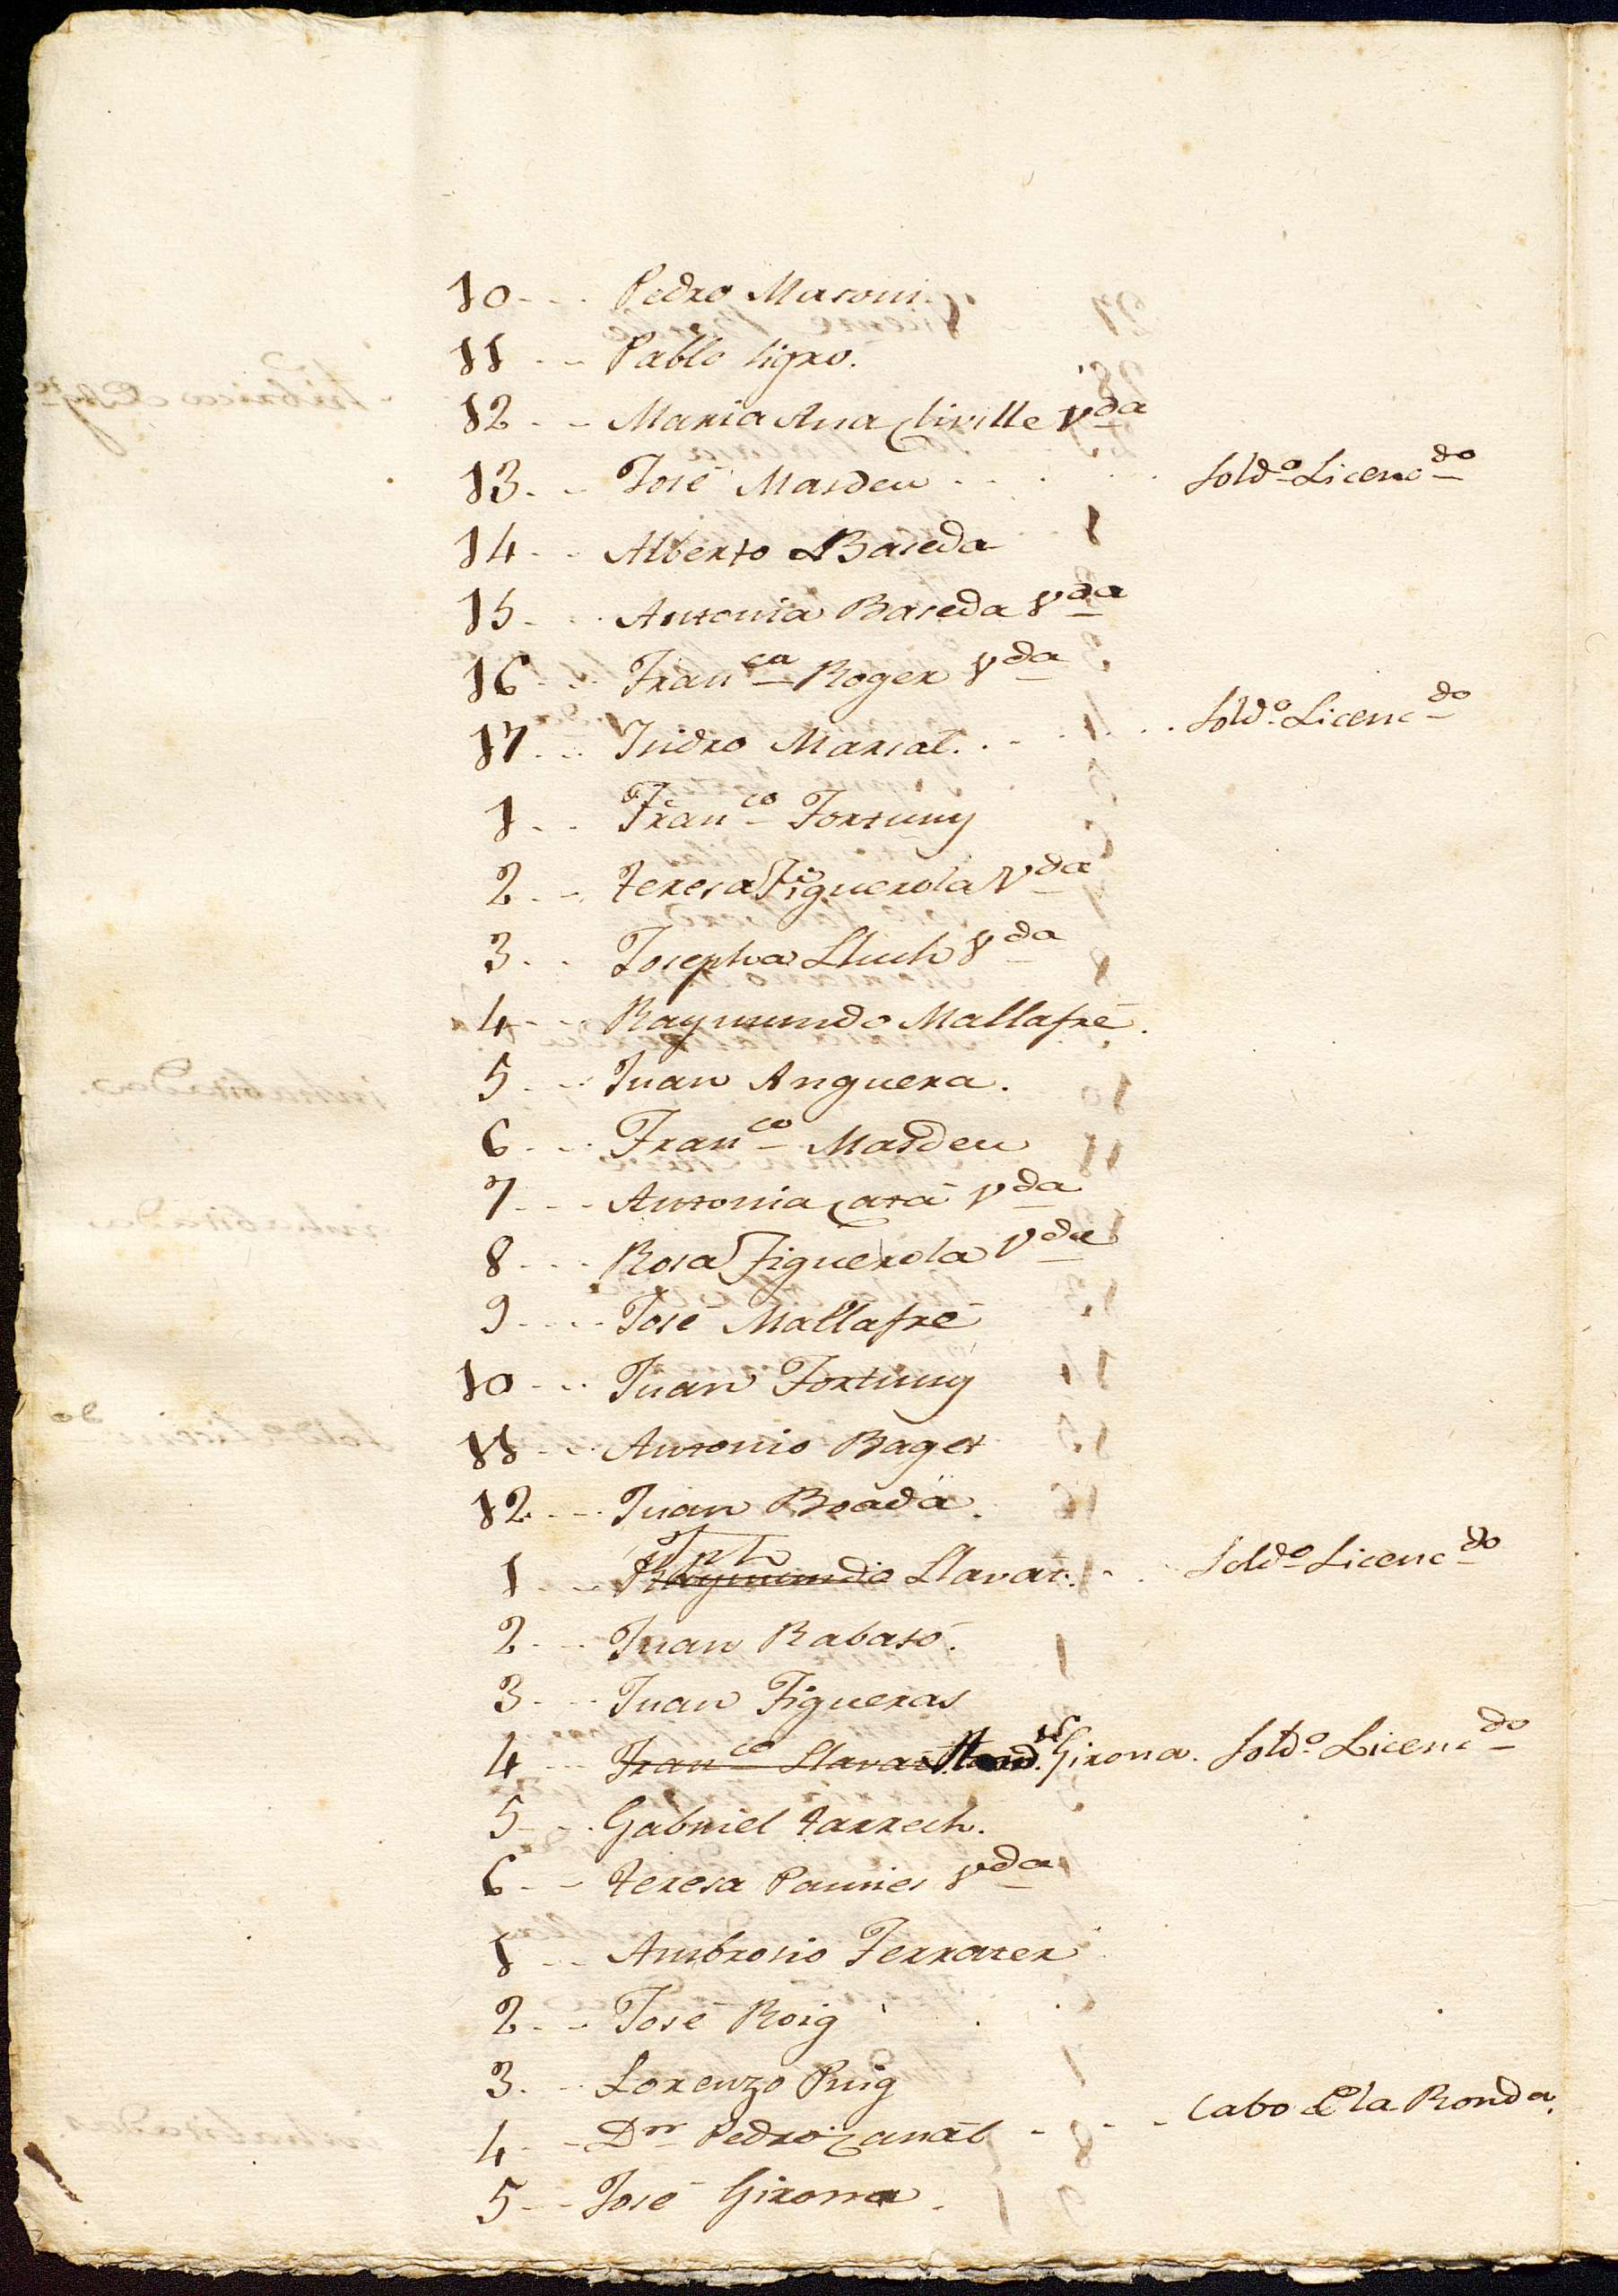 10 - - - Pedro Maroni.
11 - - Pablo tigro.
12 - - Maria Ana Civille Vda
13 - - José Masdeu - - - - - Soldo Licencdo
14 - - Alberto Baseda
15 - - Antonia Baseda Vda
16 - - Franca Roger Vda
17 - - Isidro Marsal - - - - Soldo Licencdo
1 - - Franco Fortuny
2 - - Teresa Figuerola Vda
3 - - Josepha Lluch Vda
4 - - Raymundo Mallafré.
5 - - Juan Anguera.
6 - - Franco Masdeu
7 - - - Antonia Catá Vda
8 - - - Rosa Figuerola Vda
9 - - - José Mallafré
10 - - - Juan Fortuny
11 - - - Antonio Baget
12 - - - Juan Boada.
1 - - - Raymundo Llavat. - - Soldo Licencdo
2 - - - Juan Rabasó.
3 - - - Juan Figueras
4 - - - Franco Llavat Girona. Soldo Licencdo
5 - - Gabriel Tarrech.
6 - - Teresa Pamies Vda
1 - - Ambrosio Ferrater
2 - - José Roig
3 - - Lorenzo Puig
4 - - Dn Pedro Canal - - - Cabo de la Ronda.
5 - - José Girona.